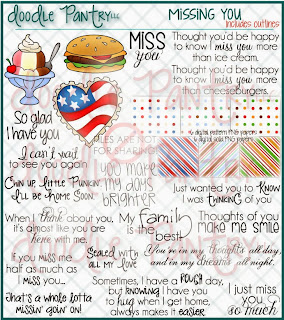 doodle Pantry LLC
MISSING YOU
includes outlines
Miss
you
Thought you'd be happy
to know I miss you more
than ice cream.
Thought you'd be happy
to know I miss you more
than cheeseburgers.
So glad
I have you
FILES ARE NOT
FOR SHARING
6 digital patterns PNG papers
6 digital solid PNG papers
I can't wait
to see you again
Chin up, Little Punkin'.
I'll be home soon.
you make
my days
brighter
Just wanted you to KNOW
I was THINKING of you
When I think about you,
it's almost like you are
here with me
My Family
is the
best
Thoughts of you
make me smile
If you miss me
half as much as
I miss you...
Sealed with
all my love
You're in my thoughts all day
and in my dreams all night.
That's a whole lotta
missin' goin' on!
Sometimes, I have a ROUGH day,
but KNOWING I have you
to hug when I get home,
always makes it easier
I just miss
you
so much